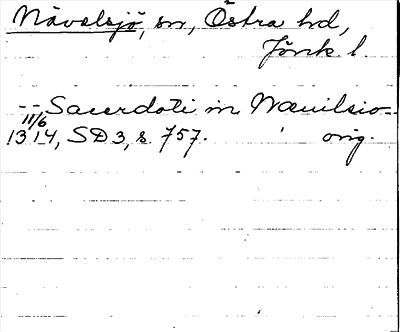 Nävelsjö, sn, Östra hd,
Jönk l.
-- Sacerdoti in Næuilsio --
11/6
1314, SD 3, s. 757. orig.